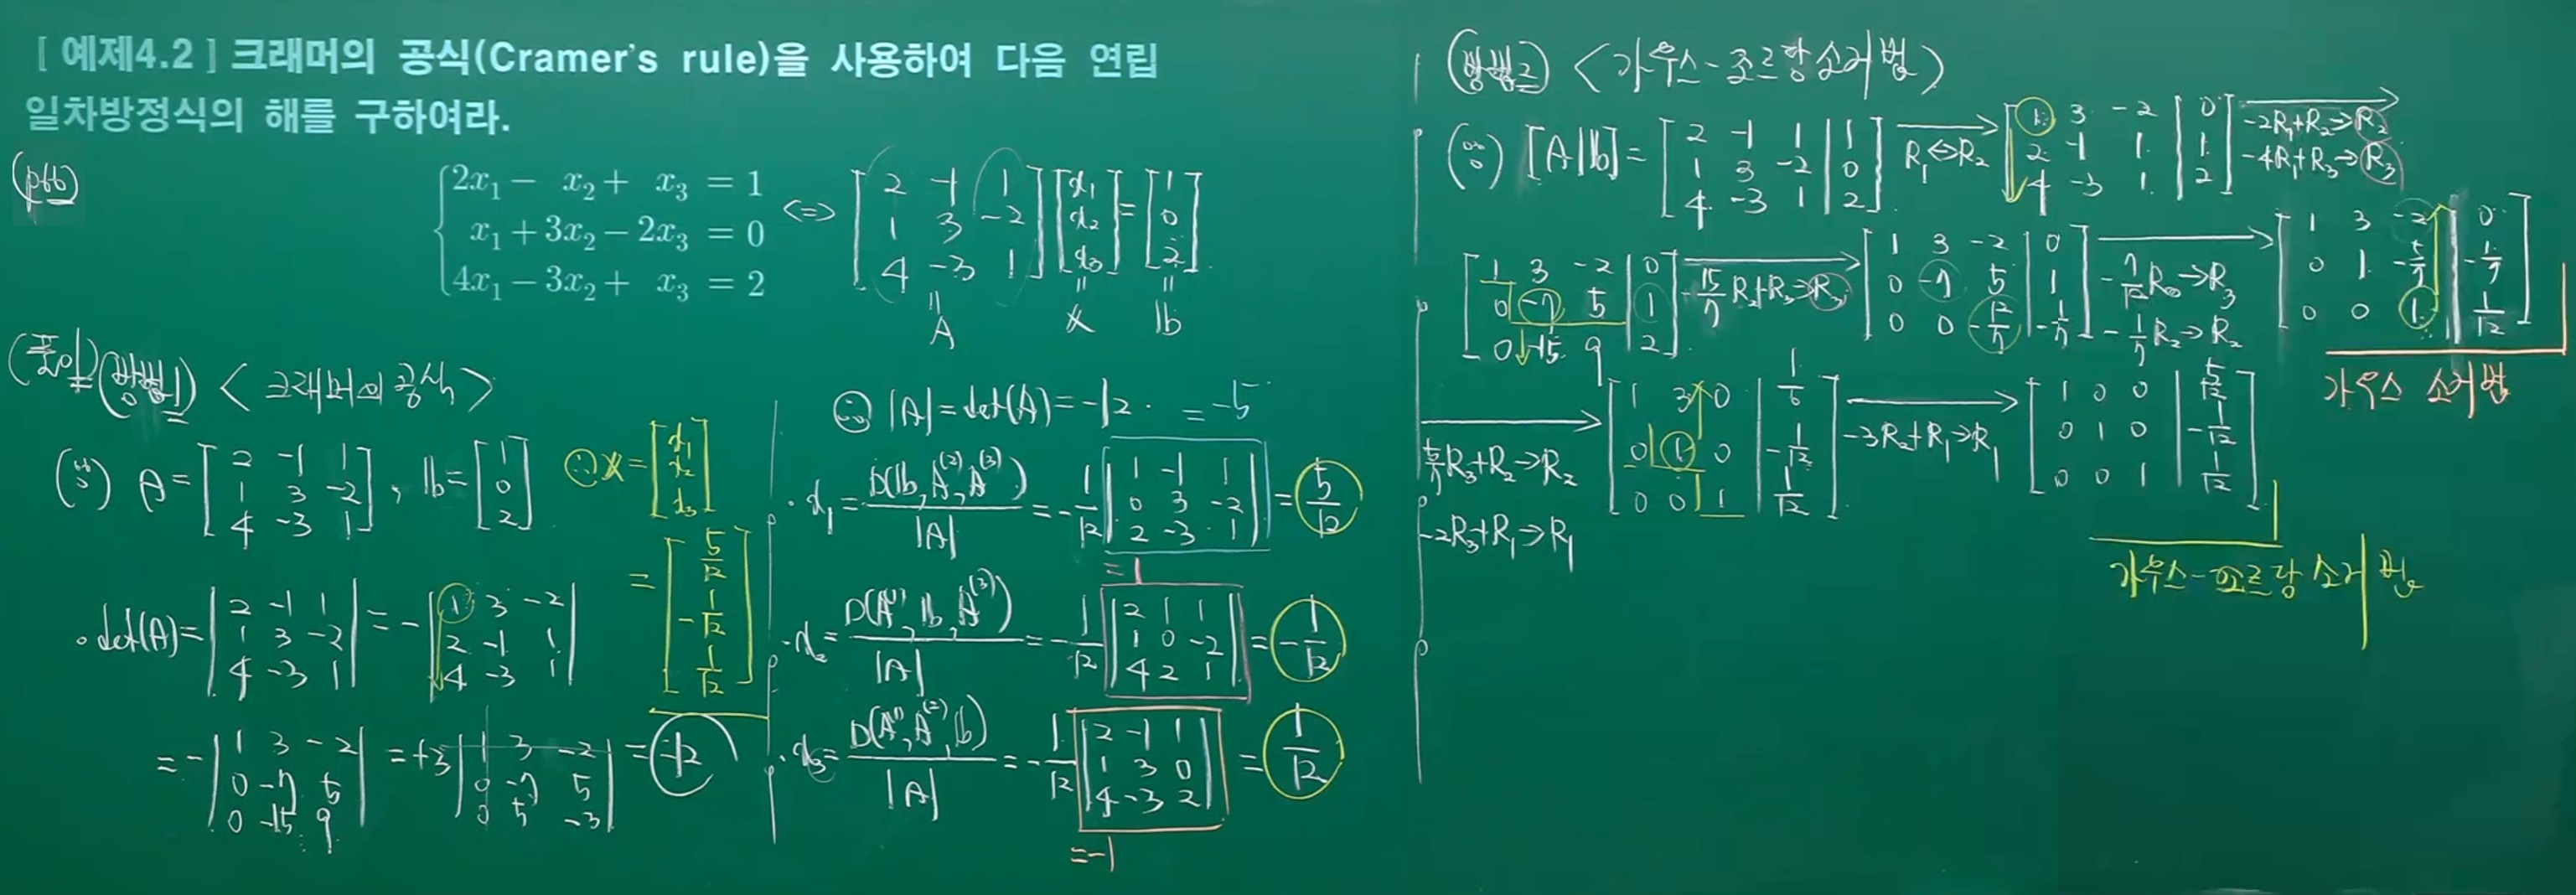 [ 예제4.2 ] 크래머의 공식(Cramer's rule)을 사용하여 다음 연립
일차방정식의 해를 구하여라.
(p66)
{2x₁ − x₂ + x₃ = 1
x₁ + 3x₂ − 2x₃ = 0
4x₁ − 3x₂ + x₃ = 2
<=> [2 -1 1; 1 3 -2; 4 -3 1] [x₁; x₂; x₃] = [1; 0; 2]
" " "
A x b
(풀이) (방법1) < 크래머의 공식 >
(∵) A = [2 -1 1; 1 3 -2; 4 -3 1], b = [1; 0; 2]
· det(A) = |2 -1 1; 1 3 -2; 4 -3 1| = - |1 3 -2; 2 -1 1; 4 -3 1|
= - |1 3 -2; 0 -7 5; 0 -15 9| = +3 |1 3 -2; 0 -7 5; 0 5 -3| = -12
∴ x = [x₁; x₂; x₃]
= [5/12; -1/12; 1/12]
∴ |A| = det(A) = -12.
= -5
· x₁ = D(b, A⁽²⁾, A⁽³⁾)/|A| = -1/12 |1 -1 1; 0 3 -2; 2 -3 1| = 5/12
= 1
· x₂ = D(A⁽¹⁾, b, A⁽³⁾)/|A| = -1/12 |2 1 1; 1 0 -2; 4 2 1| = -1/12
· x₃ = D(A⁽¹⁾, A⁽²⁾, b)/|A| = -1/12 |2 -1 1; 1 3 0; 4 -3 2| = 1/12
= -1
(방법2) < 가우스-조르당 소거법 >
(∵) [A|b] = [2 -1 1 | 1; 1 3 -2 | 0; 4 -3 1 | 2] R₁<->R₂ → [1 3 -2 | 0; 2 -1 1 | 1; 4 -3 1 | 2] -2R₁+R₂→R₂ -4R₁+R₃→R₃
[1 3 -2 | 0; 0 -7 5 | 1; 0 -15 9 | 2] -15/7 R₂+R₃→R₃ [1 3 -2 | 0; 0 -7 5 | 1; 0 0 -12/7 | -1/7] -7/12 R₃→R₃ -1/7 R₂→R₂ [1 3 -2 | 0; 0 1 -5/7 | -1/7; 0 0 1 | 1/12]
가우스 소거법
5/7 R₃+R₂→R₂ -2R₃+R₁→R₁ [1 3 0 | 1/6; 0 1 0 | -1/12; 0 0 1 | 1/12] -3R₂+R₁→R₁ [1 0 0 | 5/12; 0 1 0 | -1/12; 0 0 1 | 1/12]
가우스-조르당 소거법